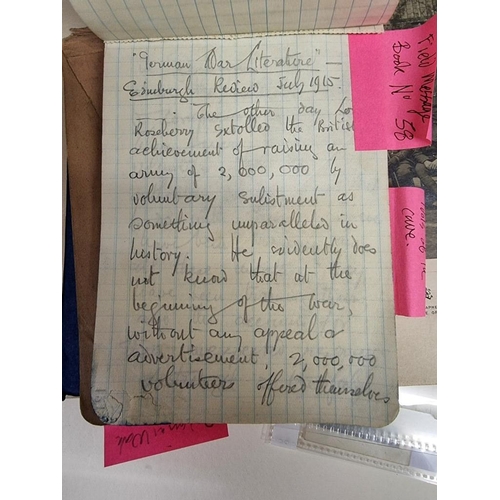 "German War Literature" –
Edinburgh Review July 1915.
The other day Lo
Roseberry extolled the British
achievement of raising an
army of 2,000,000 by
voluntary enlistment as
something unparalleled in
history. He evidently does
not know that at the
beginning of the war,
without any appeal or
advertisement, 2,000,000
volunteers offered themselves
Field Message
Book Nº 58
cave.